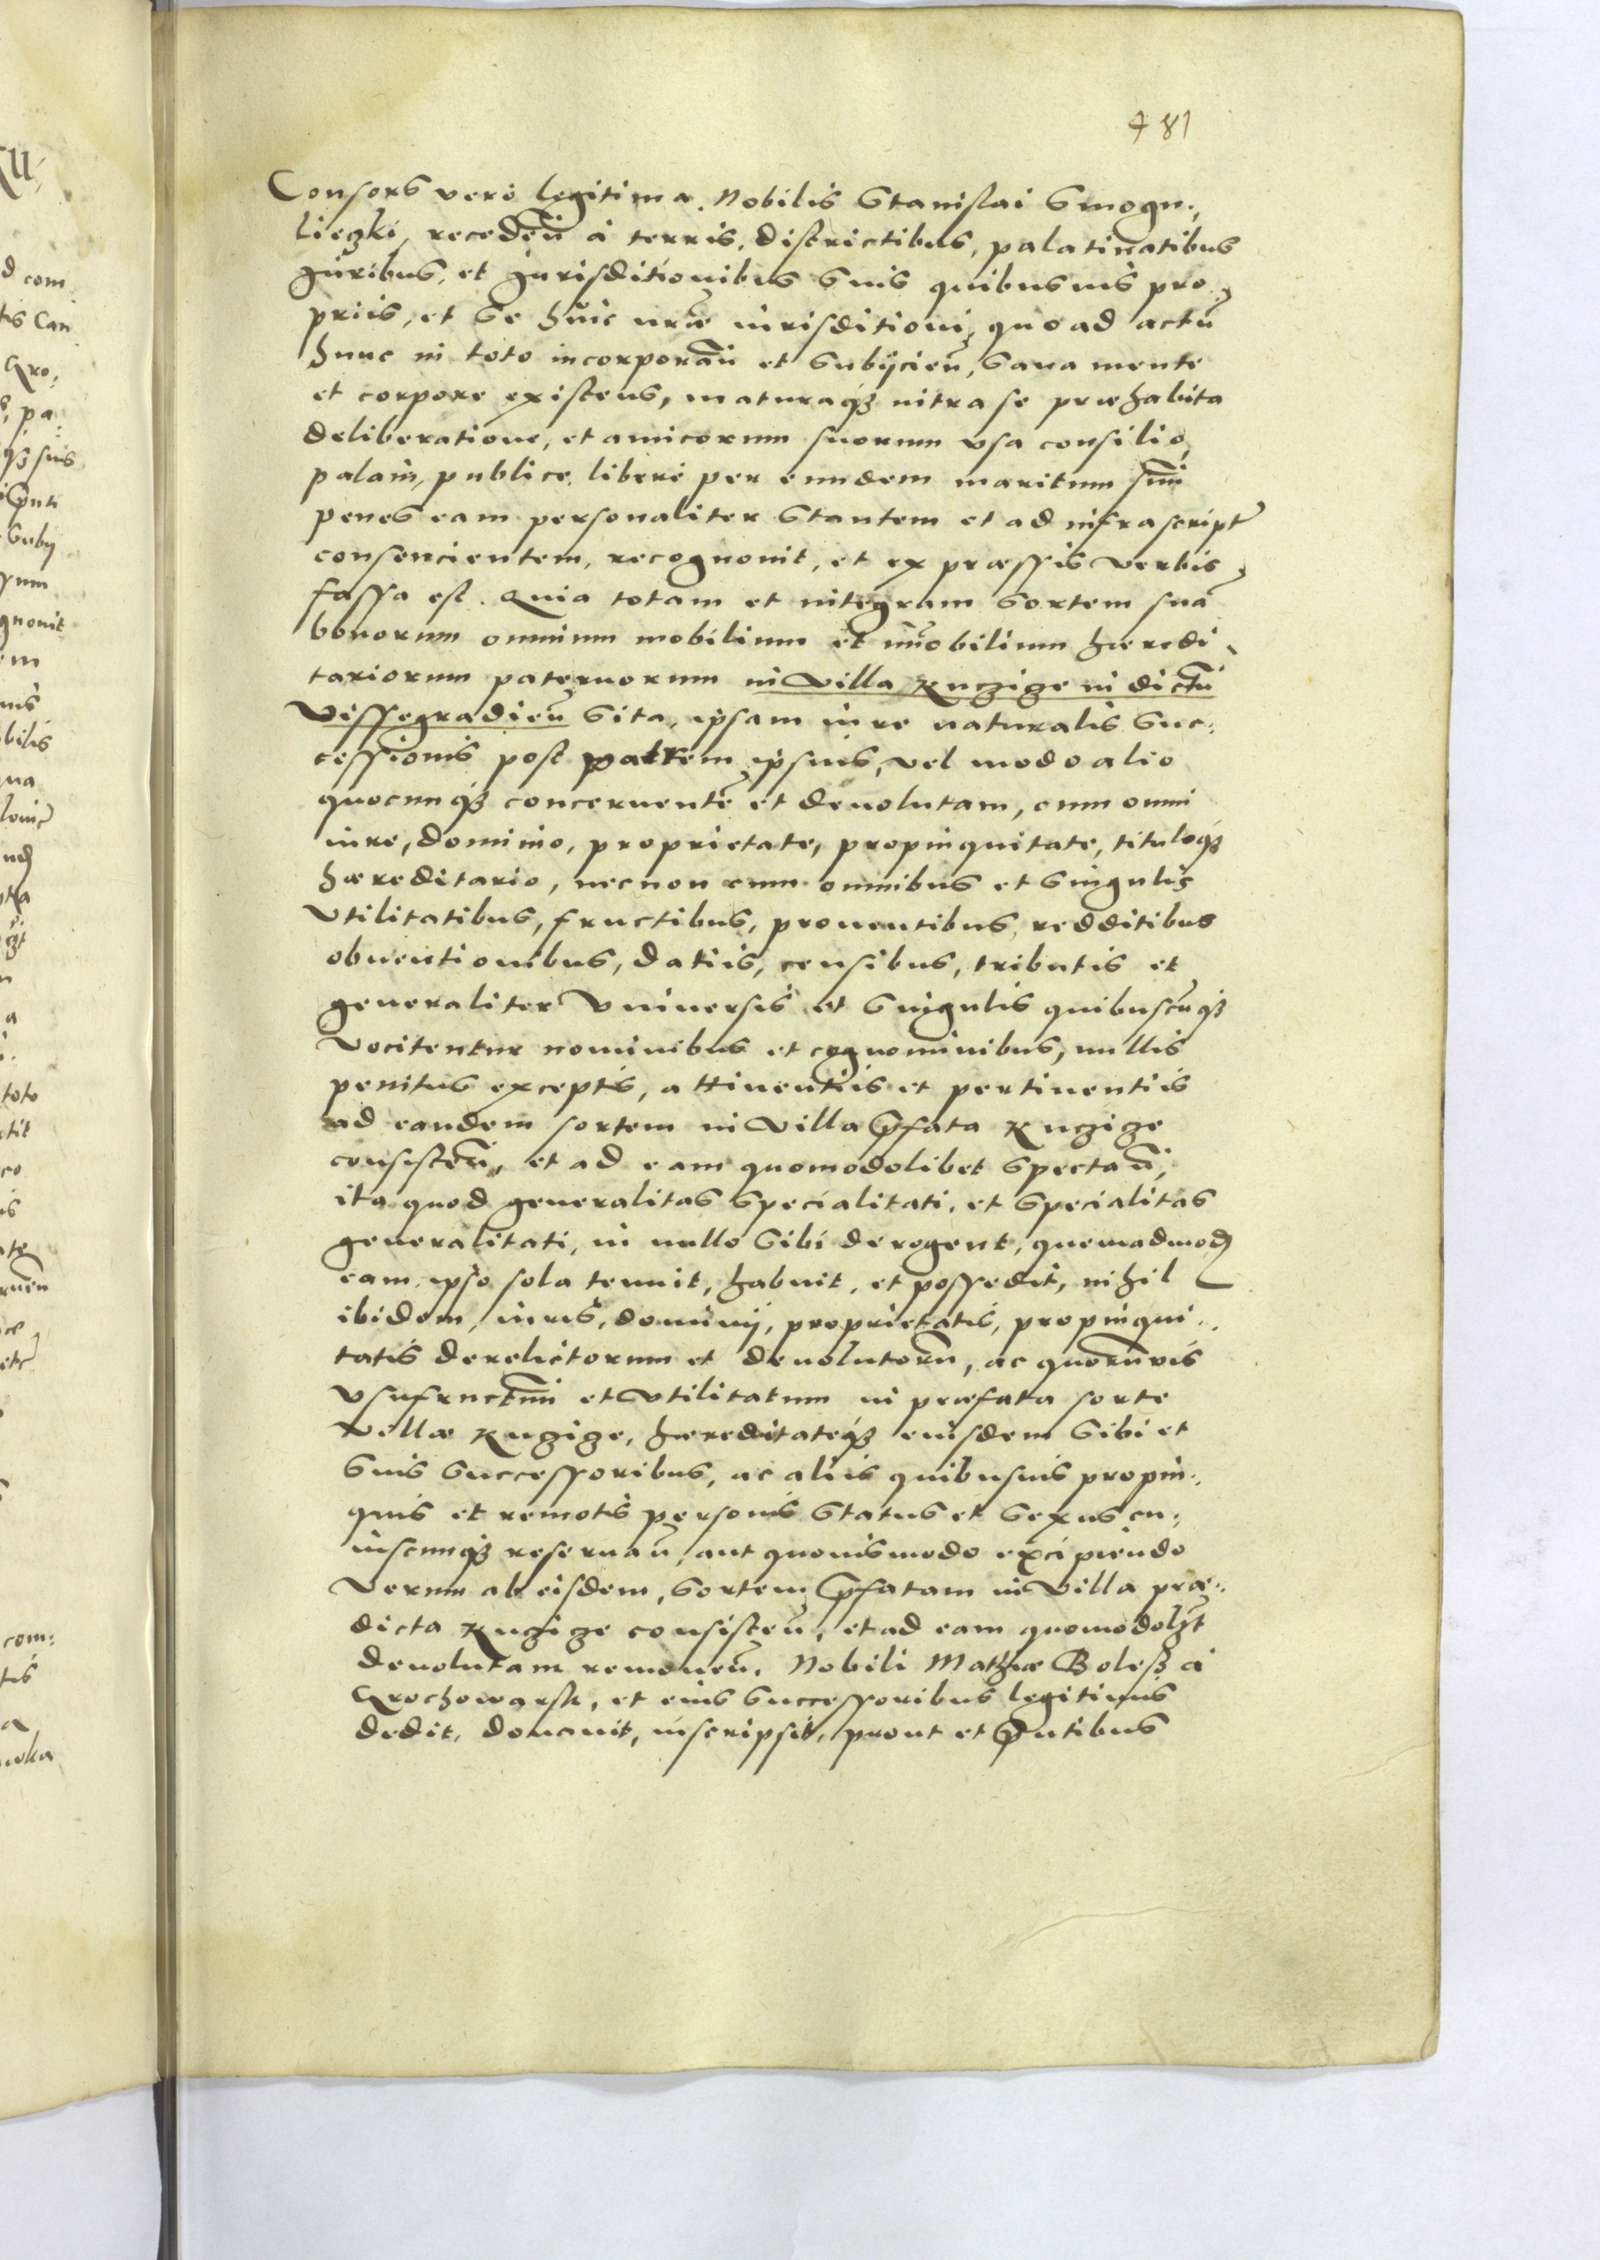 481
Consors vero legitima. Nobilis Stanislai Smogu,
lieczki, recedeñ à terris, districtibus, palatinatibus
juribus, et jurisditionibus suis quibusuis pro,
priis, et se huic nræ iurisditioni, quo ad actũ
hunc in toto incorporañ et subijcieñ, sana mente
et corpore existens, maturaq₃ intra se præhabita
deliberatione, et amicorum suorum vsa consilio,
palam, publice, libere per eundem maritum suũ
penes eam personaliter stantem et ad infrascript
consencientem, recognouit, et ex præssis verbis,
fassa est. Quia totam et integram sortem suã
bonorum omnium mobilium et im̃obilium hæredi,
tariorum paternorum in Villa Kuczize in dictũ
Vissegradieñ sita, ipsam iure naturalis suc:
cessionis post patrem ipsius, vel modo alio
quocunq₃ concernentẽ et deuolutam, cum omni
iure, dominio, proprietate, propinquitate, tituloq₃
hæreditario, necnon cum omnibus et singulis
Vtilitatibus, fructibus, prouentibus, redditibus
obuentionibus, datiis, censibus, tributis et
generaliter Vniuersis et singulis quibuscũq₃
Vocitentur nominibus et cognominibus, nullis
penitus exceptis, attinentiis et pertinentiis
ad eandem sortem in Villa p̃fata Kuczize
consisteñ, et ad eam quomodolibet spectañ,
ita quod generalitas specialitati, et specialitas
generalitati, in nullo sibi derogent, quemadmod
eam ipso sola tenuit, habuit, et possedit, nihil
ibidem, iuris, dominij, proprietatis, propinqui,,
tatis derelictorum et deuolutorũ, ac quorũvis
vsufructuũ et Vtilitatum in præfata sorte
Villæ Kuczize, hæreditateq₃ eiusdem sibi et
suis successoribus, ac aliis quibusuis propin,,
quis et remotis personis status et sexus cu,
iuscunq₃ reseruañ, aut quouismodo excipiendo
Verum ab eisdem, sortem p̃fatam in Villa præ,,
dicta Kuczize consisteñ, et ad eam quomodolzt
deuolutam remoueñ. Nobili Mathiæ Bolesz à
Grochowarsk, et eius successoribus legitimis
dedit, donauit, inscripsit, prout et p̃ntibus